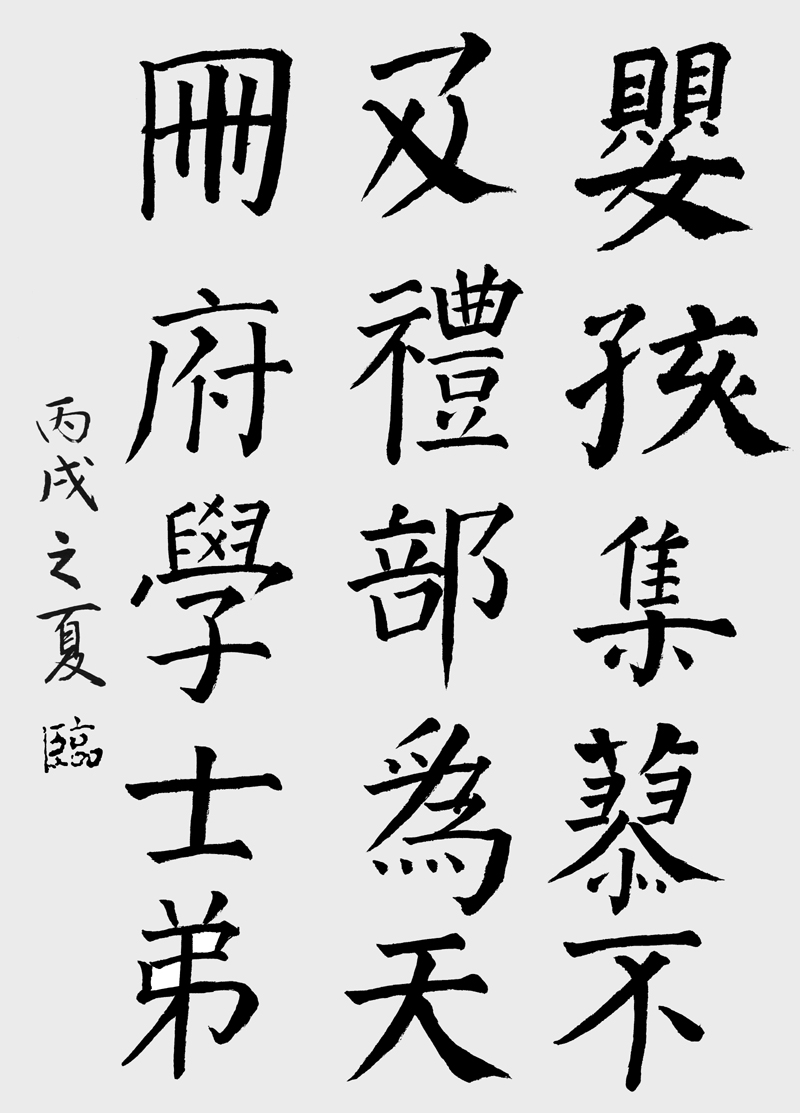 嬰孩集蓼不
及禮部爲天
冊府學士弟
丙戌之夏臨